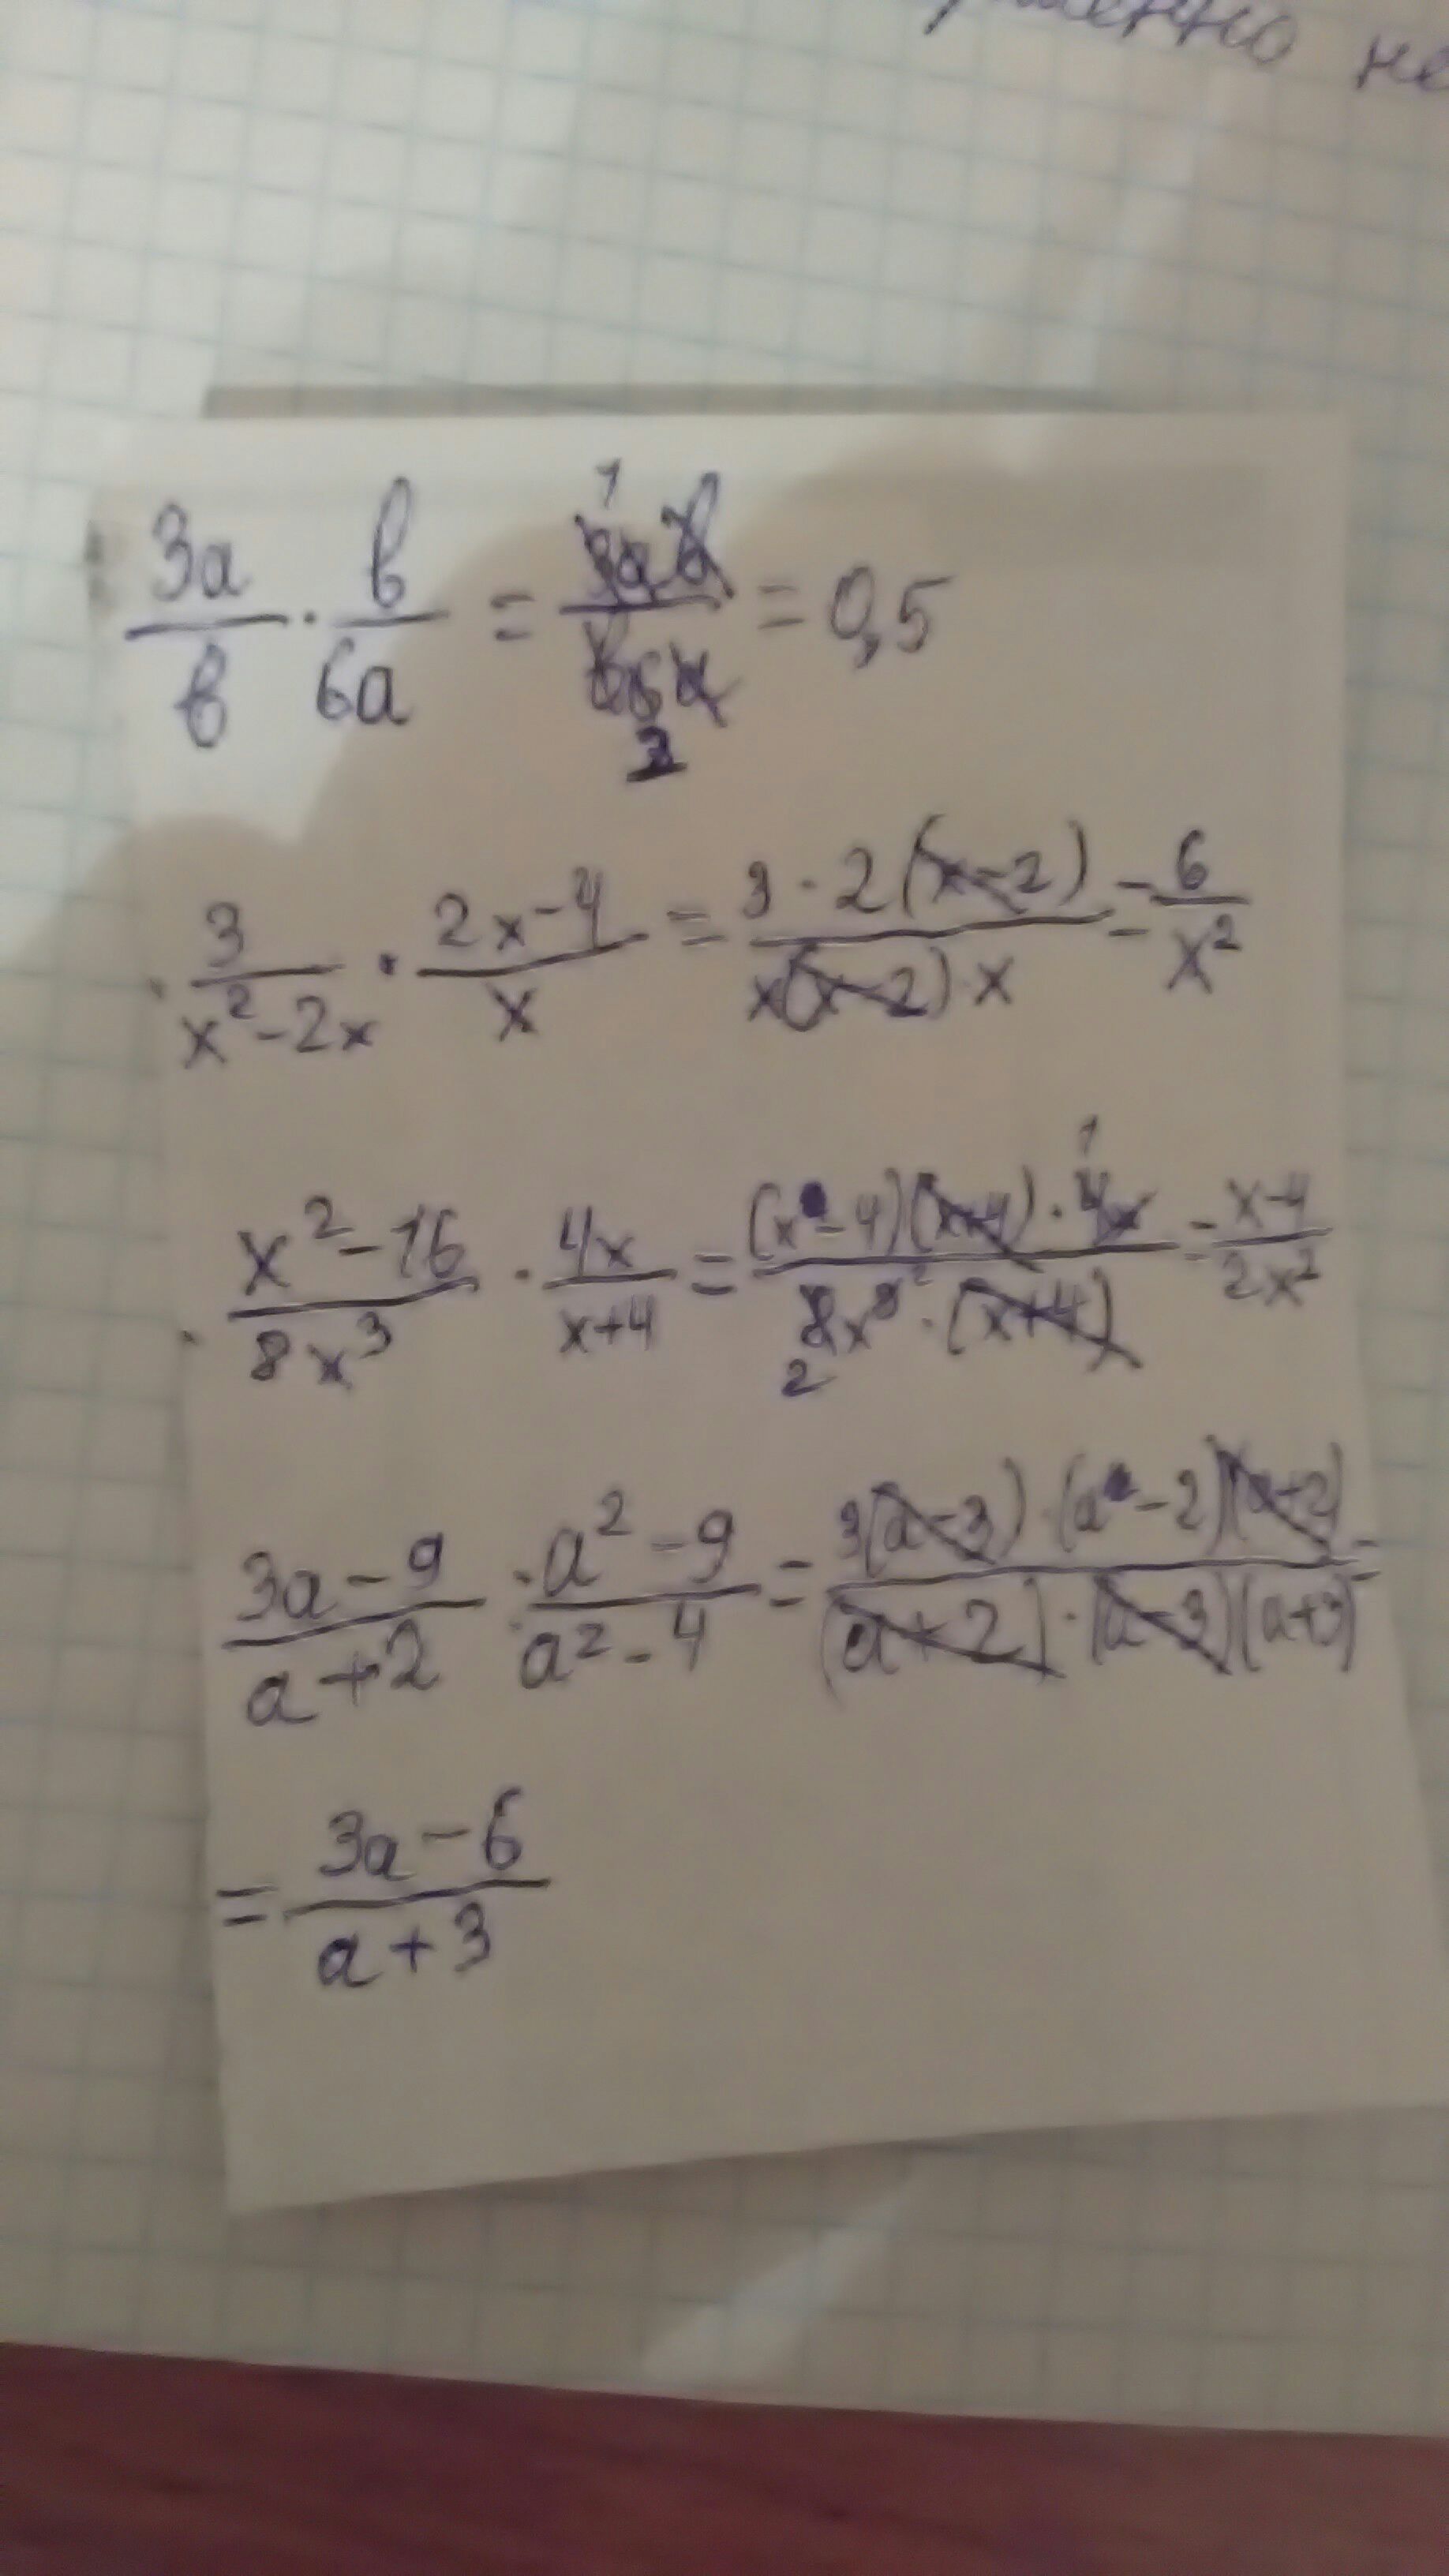 не
3a/в · в/6a = 3aв/в6a = 0,5
3/(x²-2x) · (2x-4)/x = 3·2(x-2)/(x(x-2)·x) = 6/x²
(x²-16)/(8x³) · 4x/(x+4) = (x-4)(x+4)·4x/(8x³·(x+4)) = (x-4)/(2x²)
(3a-9)/(a+2) : (a²-9)/(a²-4) = 3(a-3)·(a-2)(a+2)/((a+2)·(a-3)(a+3)) =
= (3a-6)/(a+3)